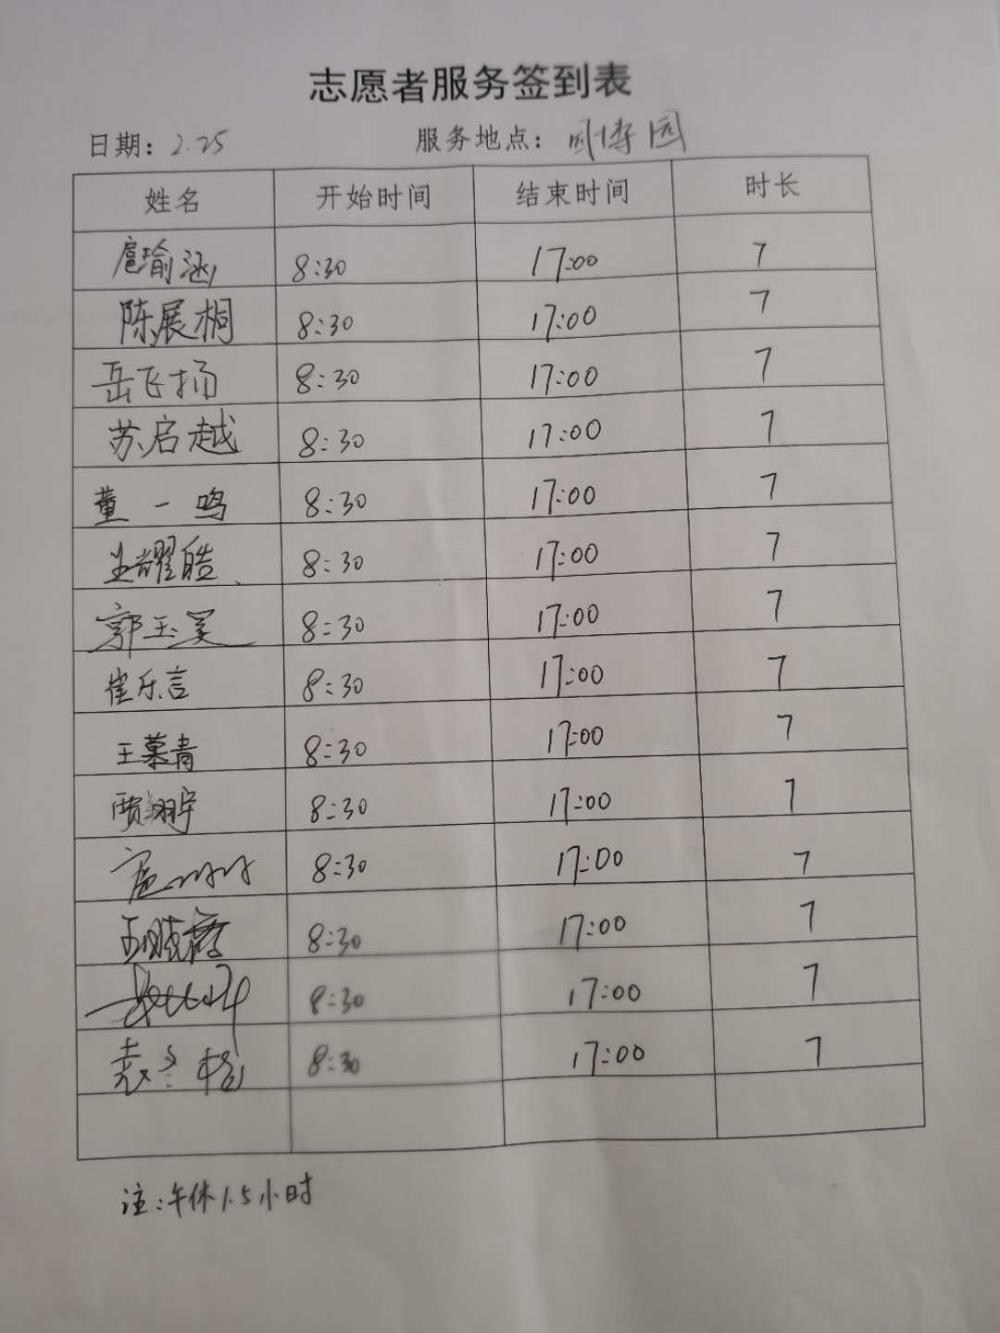 志愿者服务签到表
日期: 2.25 服务地点: 园博园
姓名 开始时间 结束时间 时长
扈瑜涵 8:30 17:00 7
陈展桐 8:30 17:00 7
岳飞扬 8:30 17:00 7
苏启越 8:30 17:00 7
董一鸣 8:30 17:00 7
王耀皓 8:30 17:00 7
郭玉昊 8:30 17:00 7
崔乐言 8:30 17:00 7
王慕青 8:30 17:00 7
贾翔宇 8:30 17:00 7
8:30 17:00 7
8:30 17:00 7
8:30 17:00 7
8:30 17:00 7
注:午休1.5小时